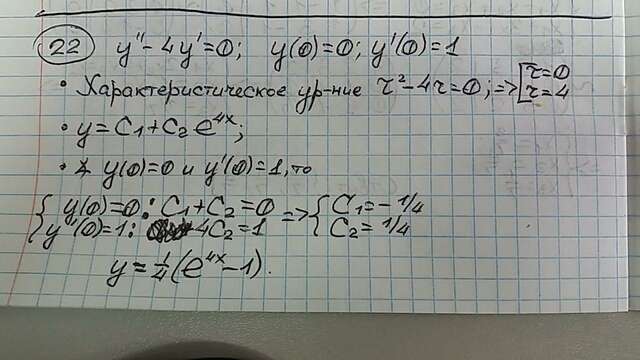 22 y'' - 4y' = 0; y(0) = 0; y'(0) = 1
• Характеристическое ур-ние r² - 4r = 0; => [r = 0
r = 4
• y = C₁ + C₂ e^{4x};
• y(0) = 0 и y'(0) = 1, то
{ y(0) = 0: C₁ + C₂ = 0 => { C₁ = - 1/4
y'(0) = 1: 4C₂ = 1 C₂ = 1/4
y = 1/4 (e^{4x} - 1).